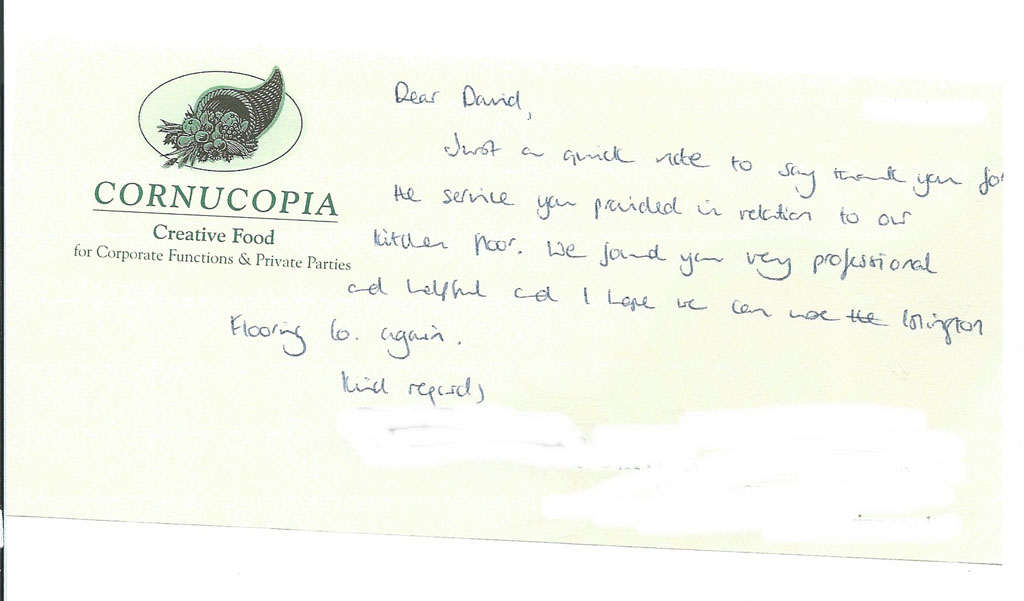 CORNUCOPIA
Creative Food
for Corporate Functions & Private Parties
Dear David,
Just a quick note to say thank you for
the service you provided in relation to our
kitchen floor. We found you very professional
and helpful and I hope we can use the
Flooring Co. again.
Kind regards,